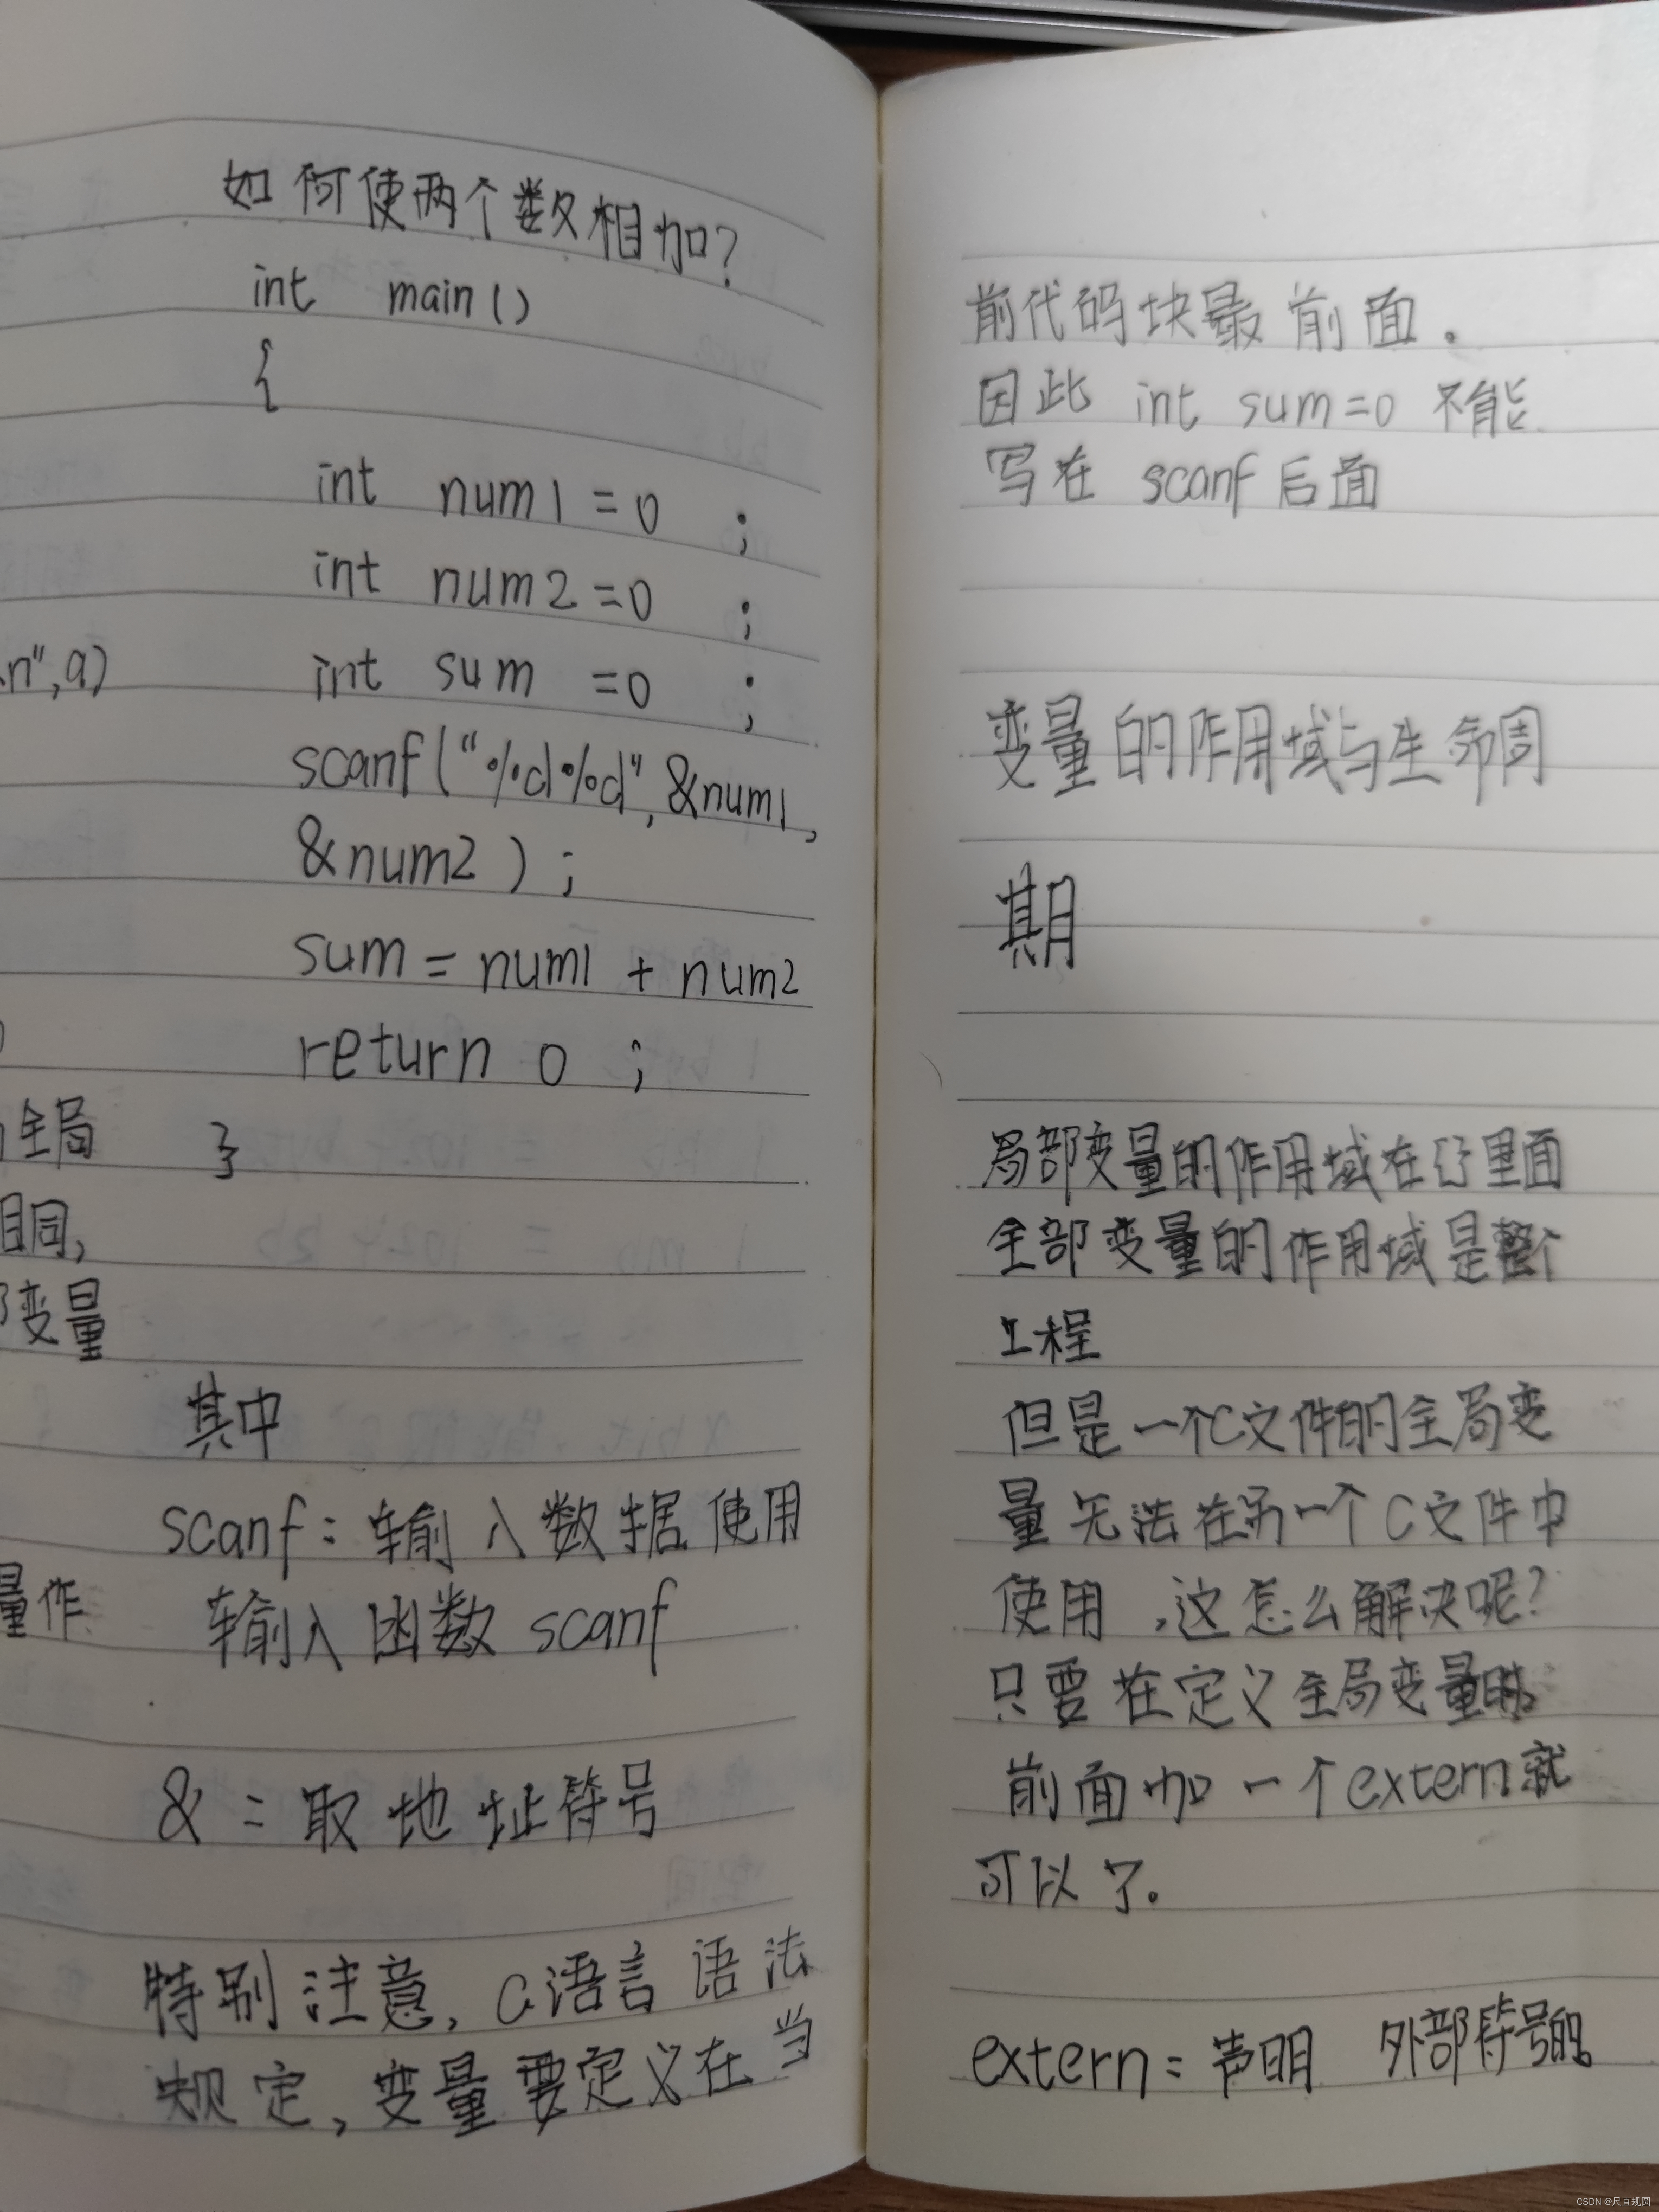 如何使两个数相加?
int main()
{
int num1=0 ;
int num2=0 ;
int sum =0 ;
scanf("%d%d",&num1,
&num2);
sum=num1+num2
return 0 ;
}
其中
scanf:输入数据使用
输入函数scanf
&:取地址符号
特别注意,C语言语法
规定,变量要定义在当
n",a)
全局
相同,
变量
量作
前代码块最前面.
因此 int sum=0 不能
写在 scanf后面
变量的作用域与生命周
期
局部变量的作用域在{}里面
全部变量的作用域是整个
工程
但是一个C文件的全局变
量无法在另一个C文件中
使用,这怎么解决呢?
只要在定义全局变量时
前面加一个extern就
可以了.
extern:声明 外部符号的
CSDN @尺直规圆